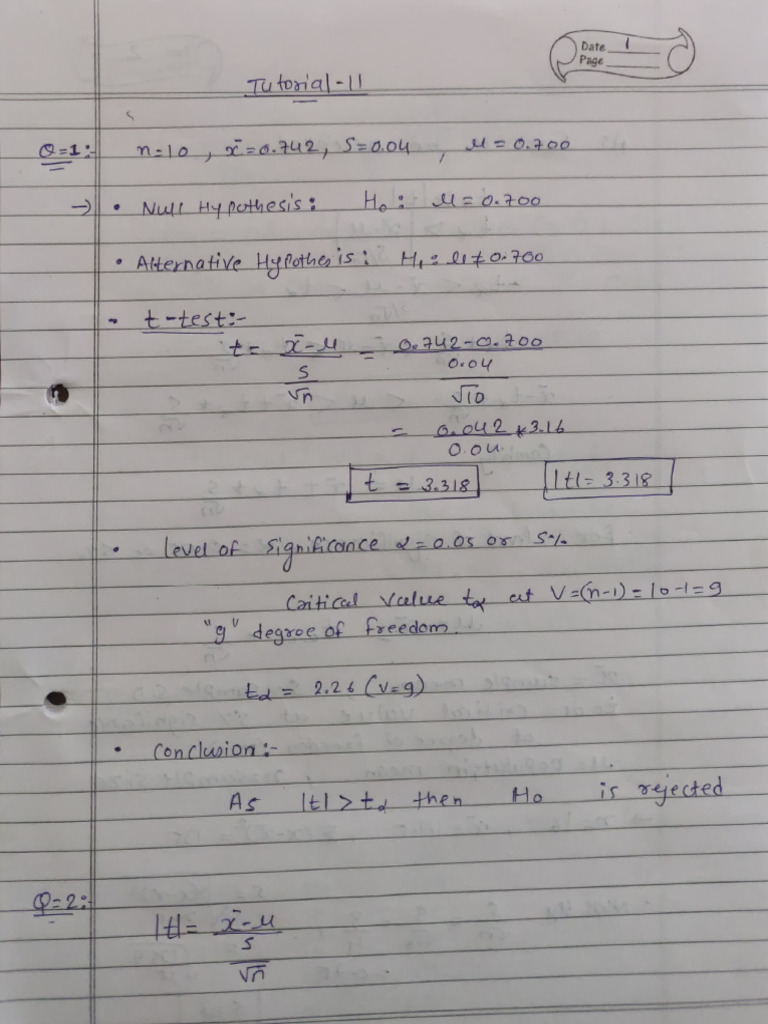 Date 1
Page
Tutorial-11
Q=1:- n=10, x̄=0.742, S=0.04, μ=0.700
→ • Null Hypothesis: H₀: μ=0.700
• Alternative Hypothesis: H₁: μ≠0.700
• t-test:-
t = x̄-μ / (s/√n) = 0.742-0.700 / (0.04/√10)
= 0.042 * 3.16 / 0.04
t = 3.318 |t| = 3.318
• level of significance α=0.05 or 5%
Critical value tα at V=(n-1)=10-1=9
"9" degree of freedom.
tα = 2.26 (v=9)
• Conclusion:-
As |t|>tα then H₀ is rejected
Q=2:-
|t| = x̄-μ / (s/√n)